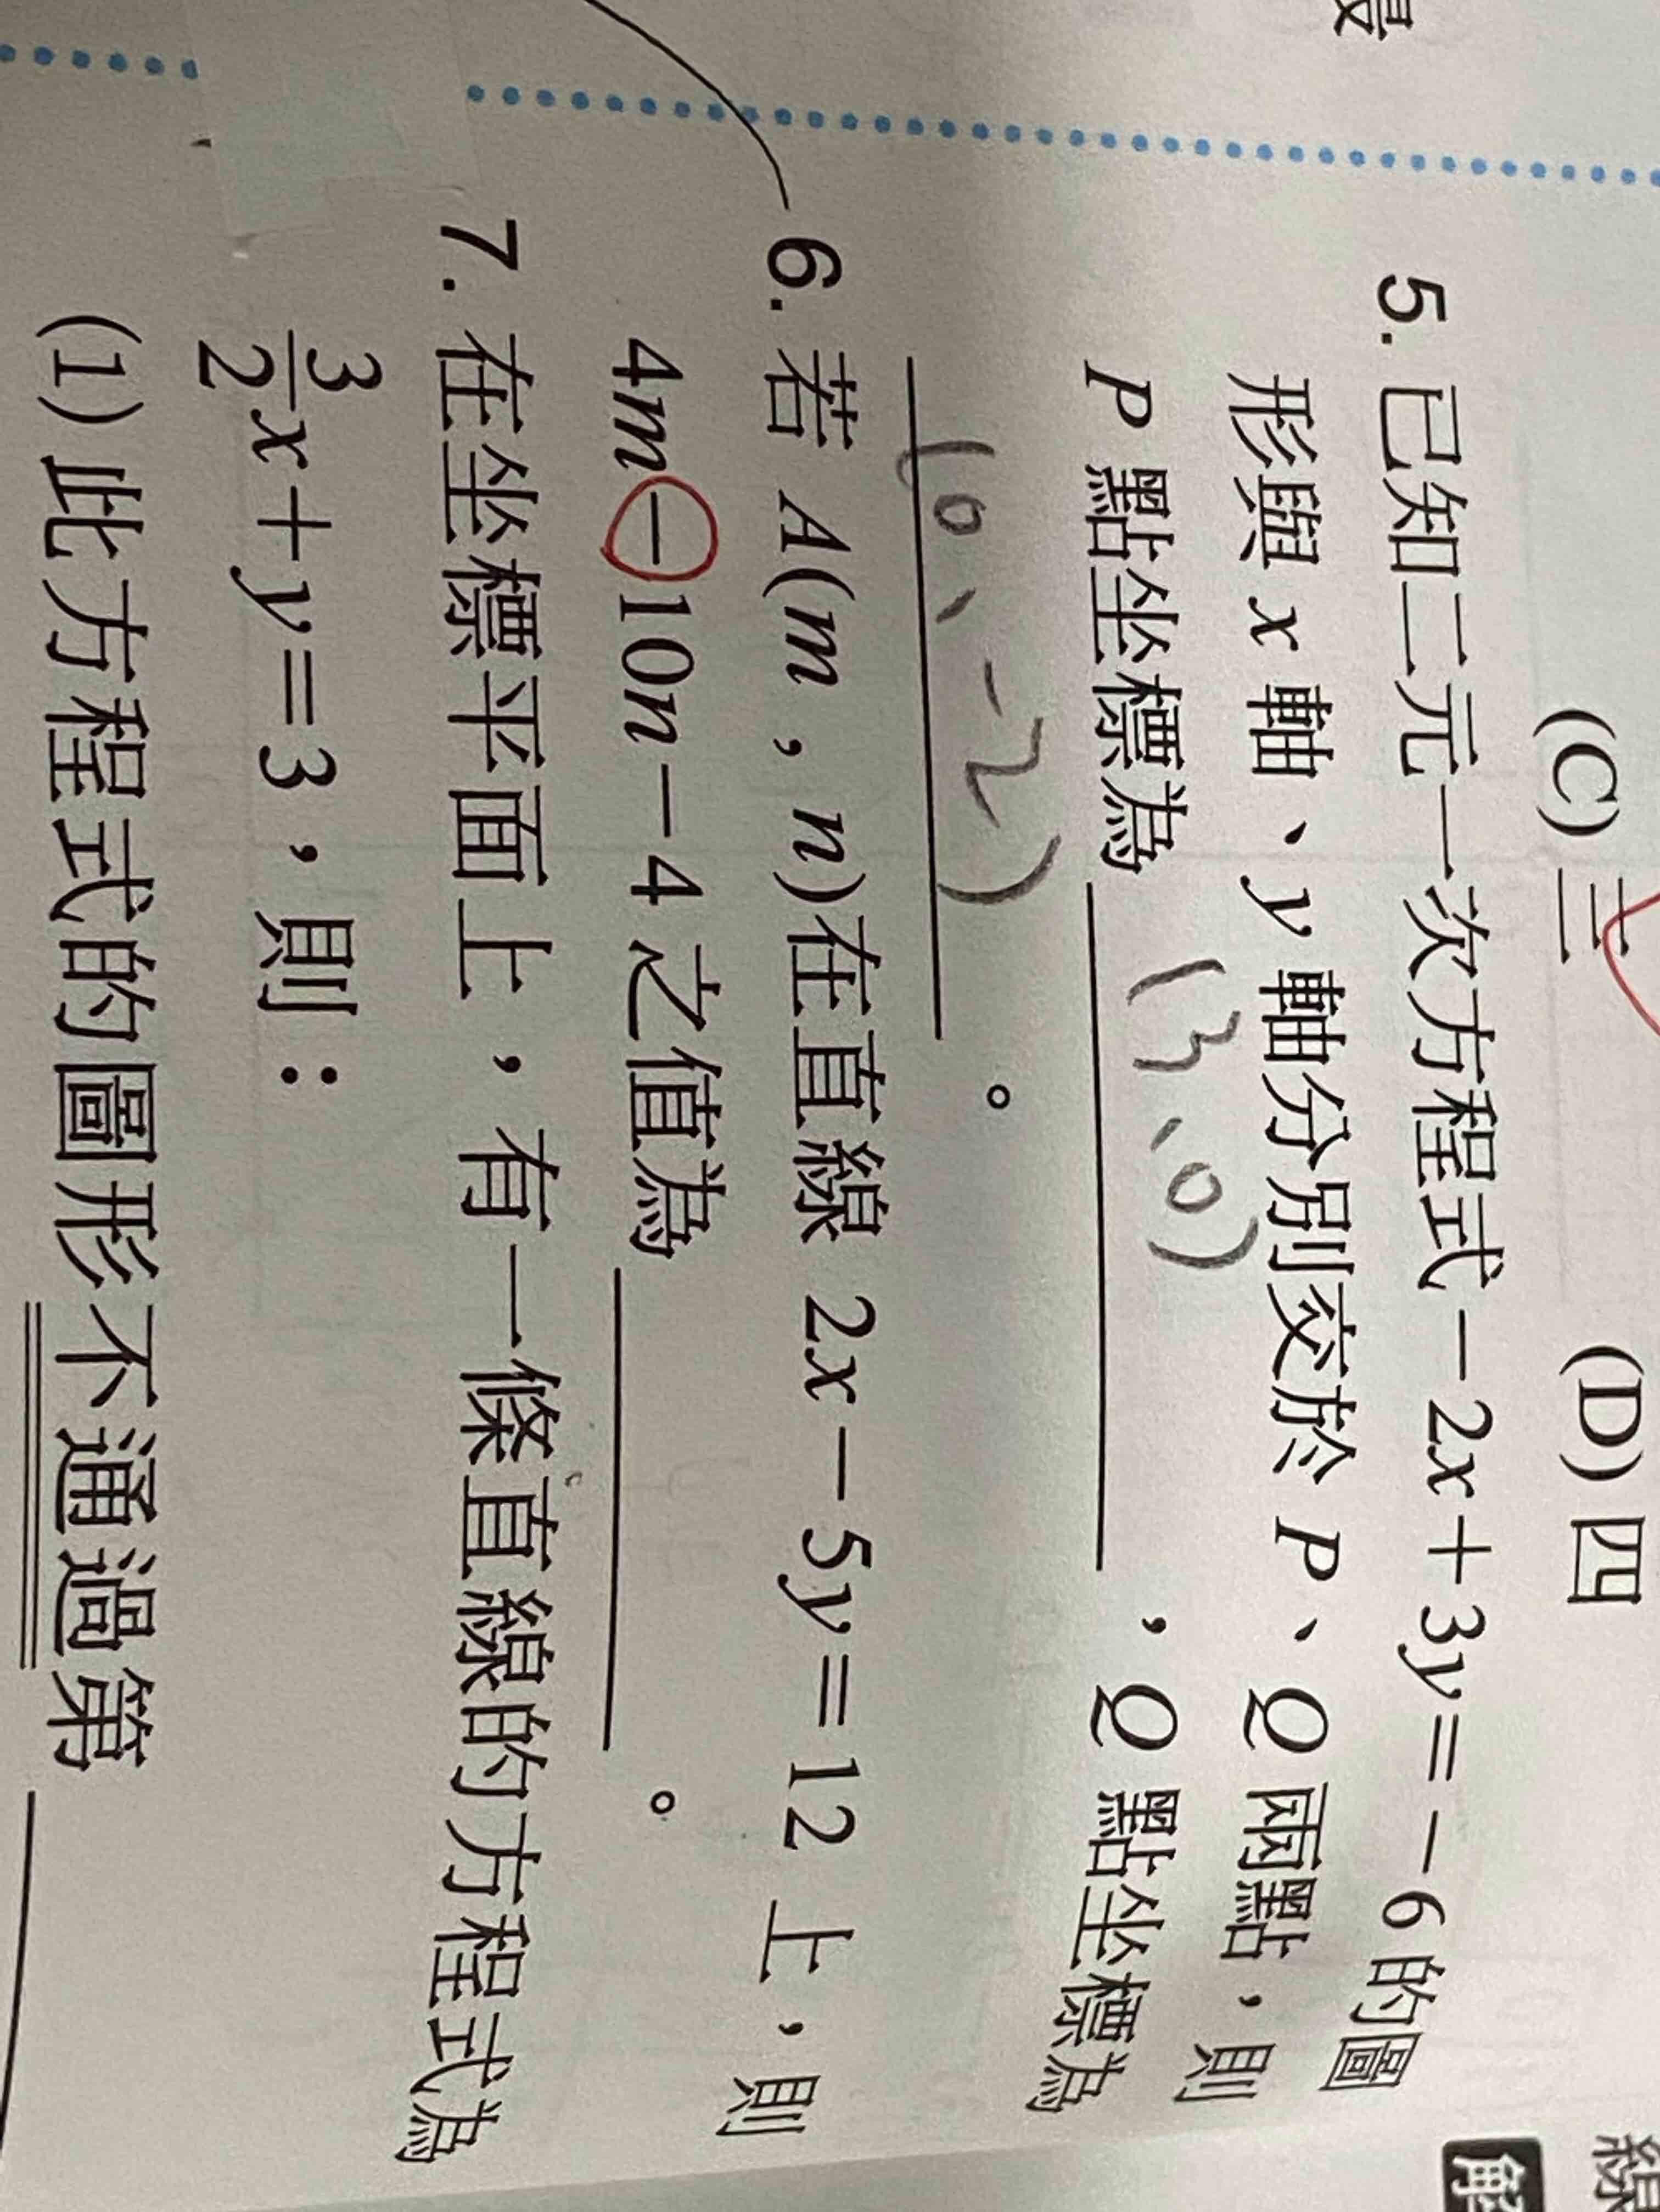 (C) 三 (D) 四
5. 已知二元一次方程式－2x＋3y＝－6 的圖
形與 x 軸、y 軸分別交於 P、Q 兩點，則
P 點坐標為 (3、0) ，Q 點坐標為
(0、-2) 。
6. 若 A(m , n)在直線 2x－5y＝12 上，則
4m－10n－4 之值為 。
7. 在坐標平面上，有一條直線的方程式為
3/2x＋y＝3，則：
(1) 此方程式的圖形不通過第